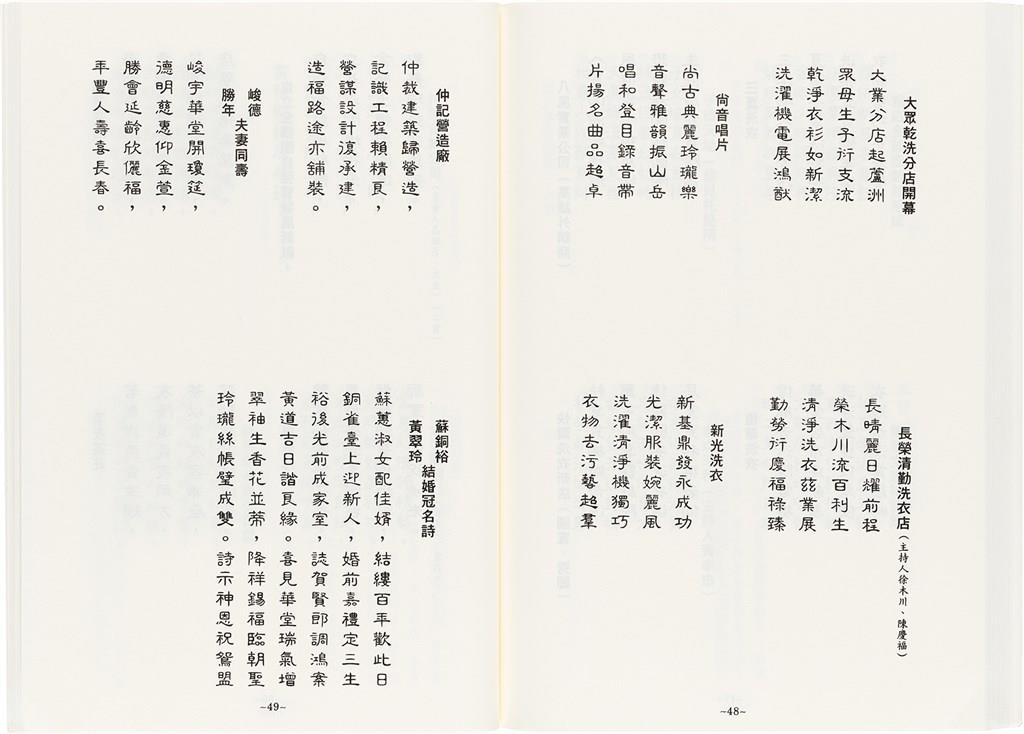 大眾乾洗分店開幕
大業分店起蘆洲
眾母生子衍支流
乾淨衣衫如新潔
洗濯機電展鴻猷
尚音唱片
尚古典麗玲瓏樂
音聲雅韻振山岳
唱和登目錄音帶
片揚名曲品超卓
長榮清勤洗衣店(主持人徐木川、陳慶福)
長晴麗日耀前程
榮木川流百利生
清淨洗衣茲業展
勤勞衍慶福祿臻
新光洗衣
新基鼎發永成功
光潔服裝婉麗風
洗濯清淨機獨巧
衣物去污藝超羣
~48~
仲記營造廠
仲裁建築歸營造，
記識工程賴精良，
營謀設計復承建，
造福路途亦舖裝。
峻德
勝年
夫妻同壽
峻宇華堂開瓊筵，
德明慈惠仰金萱，
勝會延齡欣儷福，
年豐人壽喜長春。
蘇銅裕
黃翠玲
結婚冠名詩
蘇蕙淑女配佳婿，結縷百年歡此日
銅雀臺上迎新人，婚前嘉禮定三生
裕後光前成家室，誌賀賢郎調鴻案
黃道吉日諧良緣。喜見華堂瑞氣增
翠袖生香花並蒂，降祥錫福臨朝聖
玲瓏絲帳璧成雙。詩示神恩祝鴛盟
~49~